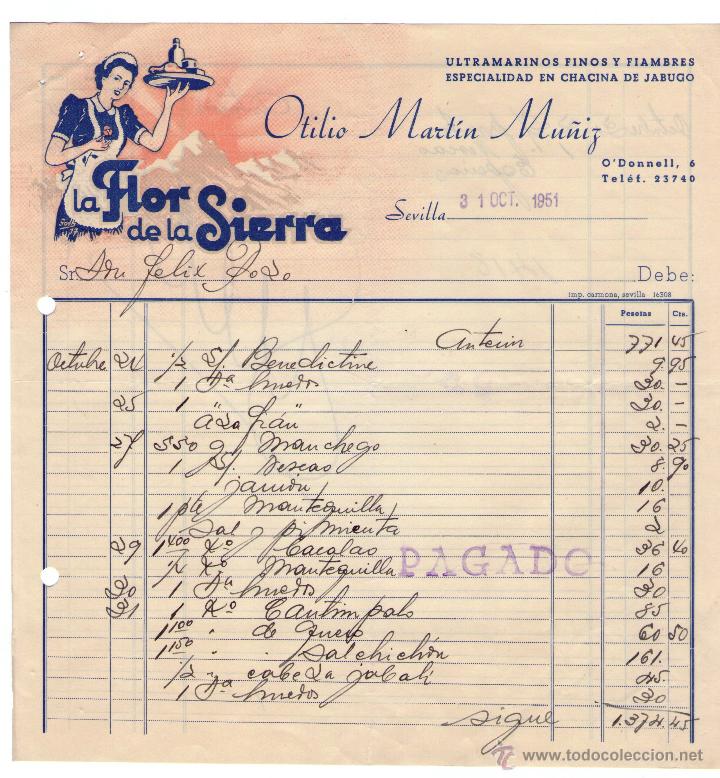 ULTRAMARINOS FINOS Y FIAMBRES
ESPECIALIDAD EN CHACINA DE JABUGO
Otilio Martín Muñiz
O'Donnell, 6
Teléf. 23740
la Flor
de la Sierra
Sevilla 31 OCT. 1951
Sr. Don Felix Pozo Debe:
imp. carmona, sevilla 16308
Pesetas Cts.
Anterior 771 45
Octubre 24 1/2 Benedictine 9 95
1 Da huevos 30. -
25 1 " 30. -
Azafrán 2. -
27 550 g Manchego 30. 25
1 8. 90
jamón 10.
1 pte Mantequilla 16
sal y pimienta 2
29 1400 Ko Bacalao 36 40
1/2 Ko Mantequilla 16
30 1 Da huevos 30
31 1 Ko Cantimpalo 85
1100 " de Queso 60 50
1150 " " salchichón 161.
1/2 " cabeza jabalí 45
1 Da huevos 30
sigue 1.374. 45
PAGADO
tc www.todocoleccion.net